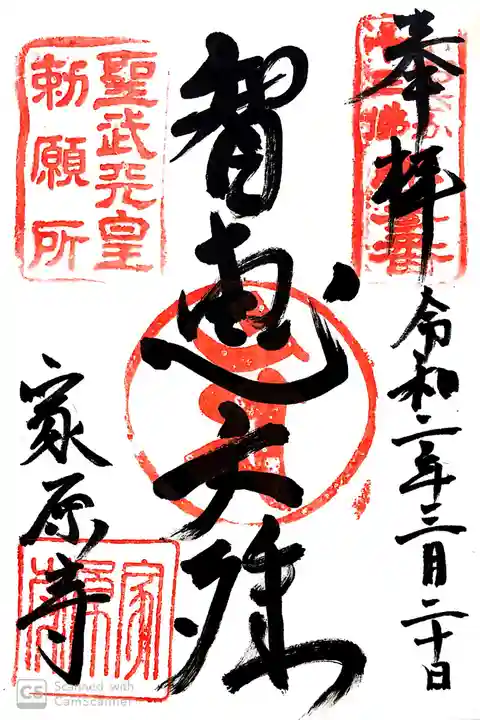 奉拝
令和二年三月二十日
智恵文殊
聖武天皇
勅願所
家原寺
CS Scanned with
CamScanner